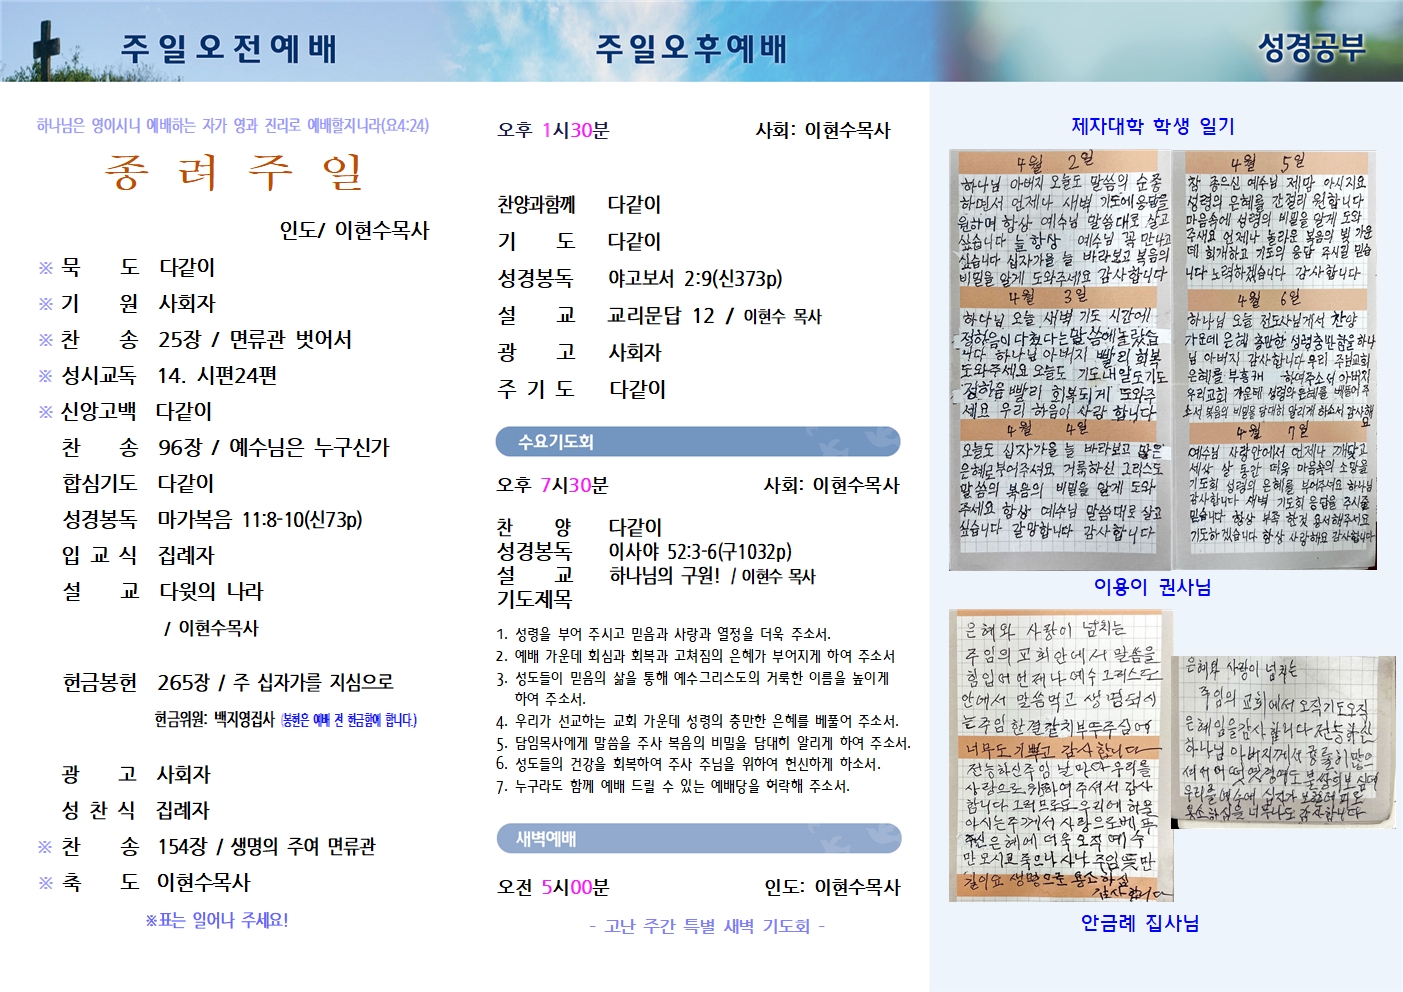 주일오전예배
하나님은 영이시니 예배하는 자가 영과 진리로 예배할지니라(요4:24)
종 려 주 일
인도/ 이현수목사
※ 묵 도 다같이
※ 기 원 사회자
※ 찬 송 25장 / 면류관 벗어서
※ 성시교독 14. 시편24편
※ 신앙고백 다같이
찬 송 96장 / 예수님은 누구신가
합심기도 다같이
성경봉독 마가복음 11:8-10(신73p)
입 교 식 집례자
설 교 다윗의 나라
/ 이현수목사
헌금봉헌 265장 / 주 십자가를 지심으로
헌금위원: 백지영집사 (봉헌은 예배 전 헌금함에 합니다.)
광 고 사회자
성 찬 식 집례자
※ 찬 송 154장 / 생명의 주여 면류관
※ 축 도 이현수목사
※표는 일어나 주세요!
주일오후예배
오후 1시30분 사회: 이현수목사
찬양과함께 다같이
기 도 다같이
성경봉독 야고보서 2:9(신373p)
설 교 교리문답 12 / 이현수 목사
광 고 사회자
주 기 도 다같이
수요기도회
오후 7시30분 사회: 이현수목사
찬 양 다같이
성경봉독 이사야 52:3-6(구1032p)
설 교 하나님의 구원! / 이현수 목사
기도제목
1. 성령을 부어 주시고 믿음과 사랑과 열정을 더욱 주소서.
2. 예배 가운데 회심과 회복과 고쳐짐의 은혜가 부어지게 하여 주소서
3. 성도들이 믿음의 삶을 통해 예수그리스도의 거룩한 이름을 높이게
하여 주소서.
4. 우리가 선교하는 교회 가운데 성령의 충만한 은혜를 베풀어 주소서.
5. 담임목사에게 말씀을 주사 복음의 비밀을 담대히 알리게 하여 주소서.
6. 성도들의 건강을 회복하여 주사 주님을 위하여 헌신하게 하소서.
7. 누구라도 함께 예배 드릴 수 있는 예배당을 허락해 주소서.
새벽예배
오전 5시00분 인도: 이현수목사
- 고난 주간 특별 새벽 기도회 -
성경공부
제자대학 학생 일기
4월 2일
하나님 아버지 오늘도 말씀의 순종
하면서 언제나 새벽 기도에 응답을
원하며 항상 예수님 말씀대로 살고
싶습니다 늘 항상 예수님 꼭 만나고
싶습니다 십자가을 늘 바라보고 복음의
비밀을 알게 도와주세요 감사합니다
4월 3일
하나님 오늘 새벽 기도 시간에
정하음이 다쳤다는 말씀에 놀랐습
니다 하나님 아버지 빨리 회복
도와주세요 오늘도 기도 내일도 기도
정하음 빨리 회복되게 도와주
세요 우리 하음이 사랑 합니다
4월 4일
오늘도 십자가을 늘 바라보고 많은
은혜로 부어주셔요 거룩하신 그리스도
말씀의 복음의 비밀을 알게 도와
주세요 항상 예수님 말씀대로 살고
싶습니다 갈망합니다 감사합니다
4월 5일
참 좋으신 예수님 제맘 아시지요
성령의 은혜를 간절히 원합니다
마음속에 성령의 비밀을 알게 도와
주세요 언제나 놀라운 복음의 빛 가운
데 회개하고 기도의 응답 주시길 믿습
니다 노력하겠습니다 감사합니다
4월 6일
하나님 오늘 전도사님께서 찬양
가운데 은혜 충만한 성령충만함을 하나
님 아버지 감사합니다 우리 주님교회
은혜를 부흥케 하여주소서 아버지
우리교회 가운데 성령의 은혜를 베풀어주
소서 복음의 비밀을 담대히 알리게 하소서 감사해
요
4월 7일
예수님 사랑안에서 언제나 깨닫고
세상 살 동안 더욱 마음속의 소망을
기도회 성령의 은혜를 부어주셔요 하나님
감사합니다 새벽 기도회 응답을 주시줄
믿습니다 항상 부족 한것 용서해주세요
기도하겠습니다 항상 사랑해요 감사합니다
이용이 권사님
은혜와 사랑이 넘치는
주임의 교회 안에서 말씀을
힘입어 언제나 예수 그리스도
안에서 말씀먹고 생명되시
는 주임 한결같치 부두주심에
너무도 기쁘고 감사합니다
전능하신 주임 날마다 우리를
사랑으로 위하여 주셔서 감사
합니다 그러므로 우리에 하울
아시는 주께서 사랑으로 베푸
주신 은혜에 더욱 오직 예수
만 모시고 죽으나 사나 주임 뜻만
길이요 생명으로 용소하심
감사합니다
은혜와 사랑이 넘치는
주임의 교회에서 오직 기도 오직
은혜임을 감사합니다 전능하신
하나님 아버지께서 긍률히 많으
안금례 집사님